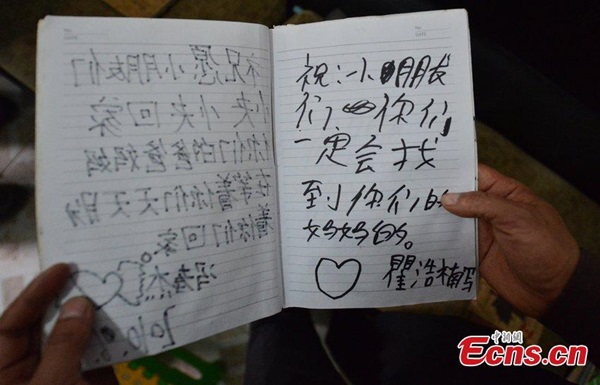 祝愿小朋友们
回家
你们的爸爸妈妈
在等着你们天天盼
着你们回家
祝:小朋友
们你们
一定会找
到你们的
妈妈的。
瞿浩楠写
中新网
Ecns.cn